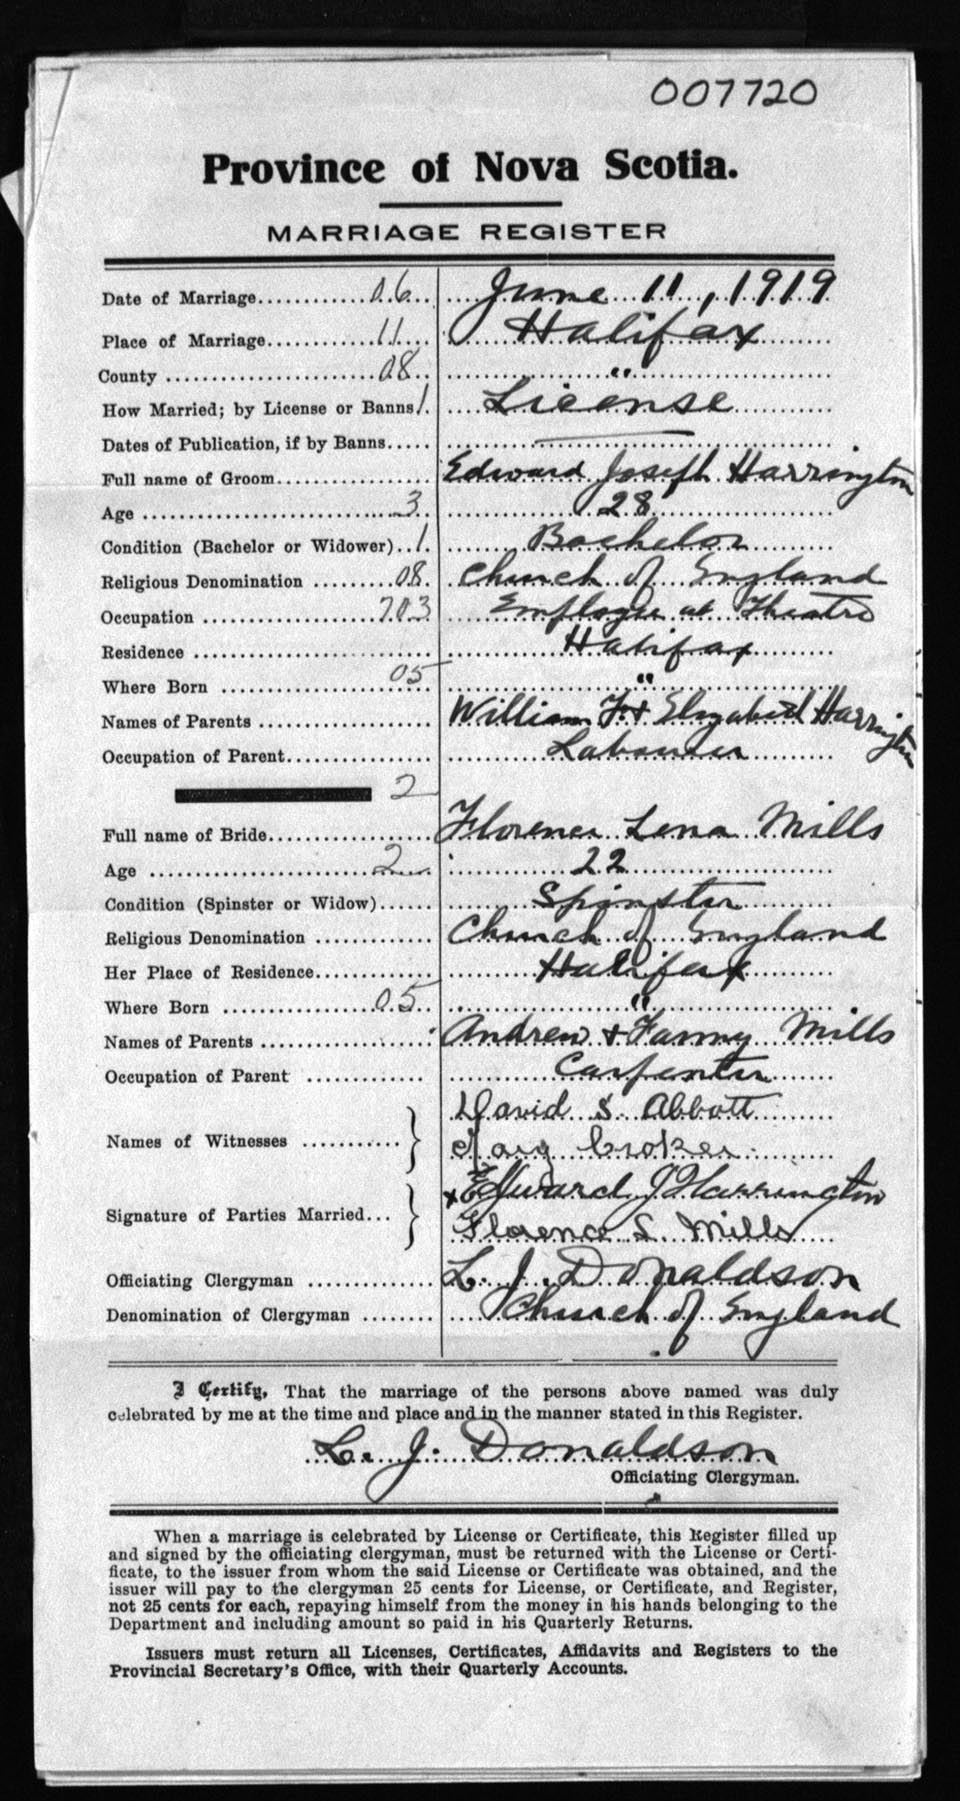 007720
Province of Nova Scotia.
MARRIAGE REGISTER
Date of Marriage............06.. June 11, 1919
Place of Marriage............11.... Halifax
County ........................08.. "
How Married; by License or Banns 1. License
Dates of Publication, if by Banns..... ——
Full name of Groom................. Edward Joseph Harrington
Age ............................3.. 28
Condition (Bachelor or Widower)..1. Bachelor
Religious Denomination .........08. Church of England
Occupation ....................703 Employee at Theatre
Residence ........................... Halifax
Where Born ......................05 "
Names of Parents .................. William F. & Elizabeth Harrington
Occupation of Parent................ Labourer
2
Full name of Bride.................. Florence Lena Mills
Age ..........................2.... 22
Condition (Spinster or Widow)...... Spinster
Religious Denomination ............ Church of England
Her Place of Residence............. Halifax
Where Born ...................05.. "
Names of Parents .................. Andrew & Fanny Mills
Occupation of Parent ............. Carpenter
David S. Abbott
Names of Witnesses ...........
Mary Croker
x Edward J Harrington
Signature of Parties Married...
Florence L. Mills
Officiating Clergyman ............. L. J. Donaldson
Denomination of Clergyman ........ Church of England
I Certify, That the marriage of the persons above named was duly
celebrated by me at the time and place and in the manner stated in this Register.
L. J. Donaldson
Officiating Clergyman.
When a marriage is celebrated by License or Certificate, this Register filled up
and signed by the officiating clergyman, must be returned with the License or Certi-
ficate, to the issuer from whom the said License or Certificate was obtained, and the
issuer will pay to the clergyman 25 cents for License, or Certificate, and Register,
not 25 cents for each, repaying himself from the money in his hands belonging to the
Department and including amount so paid in his Quarterly Returns.
Issuers must return all Licenses, Certificates, Affidavits and Registers to the
Provincial Secretary's Office, with their Quarterly Accounts.